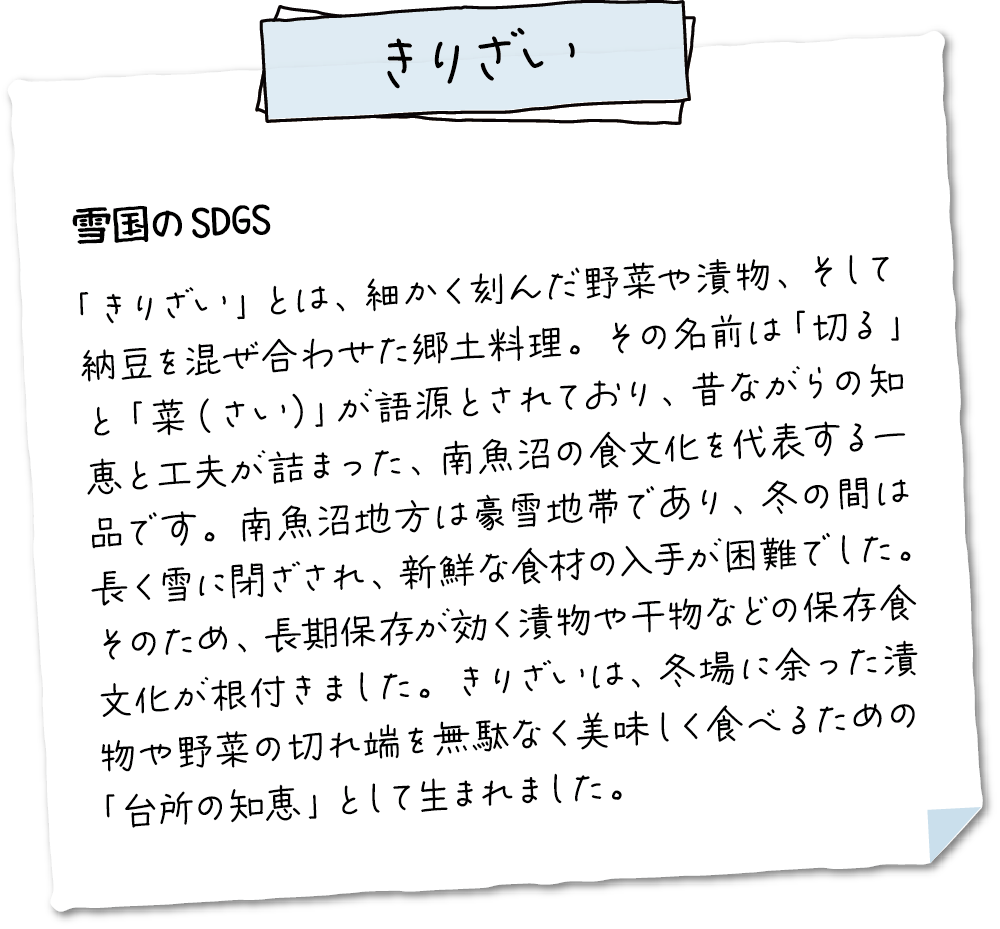 きりざい
雪国のSDGS
「きりざい」とは、細かく刻んだ野菜や漬物、そして
納豆を混ぜ合わせた郷土料理。その名前は「切る」
と「菜(さい)」が語源とされており、昔ながらの知
恵と工夫が詰まった、南魚沼の食文化を代表する一
品です。南魚沼地方は豪雪地帯であり、冬の間は
長く雪に閉ざされ、新鮮な食材の入手が困難でした。
そのため、長期保存が効く漬物や干物などの保存食
文化が根付きました。きりざいは、冬場に余った漬
物や野菜の切れ端を無駄なく美味しく食べるための
「台所の知恵」として生まれました。